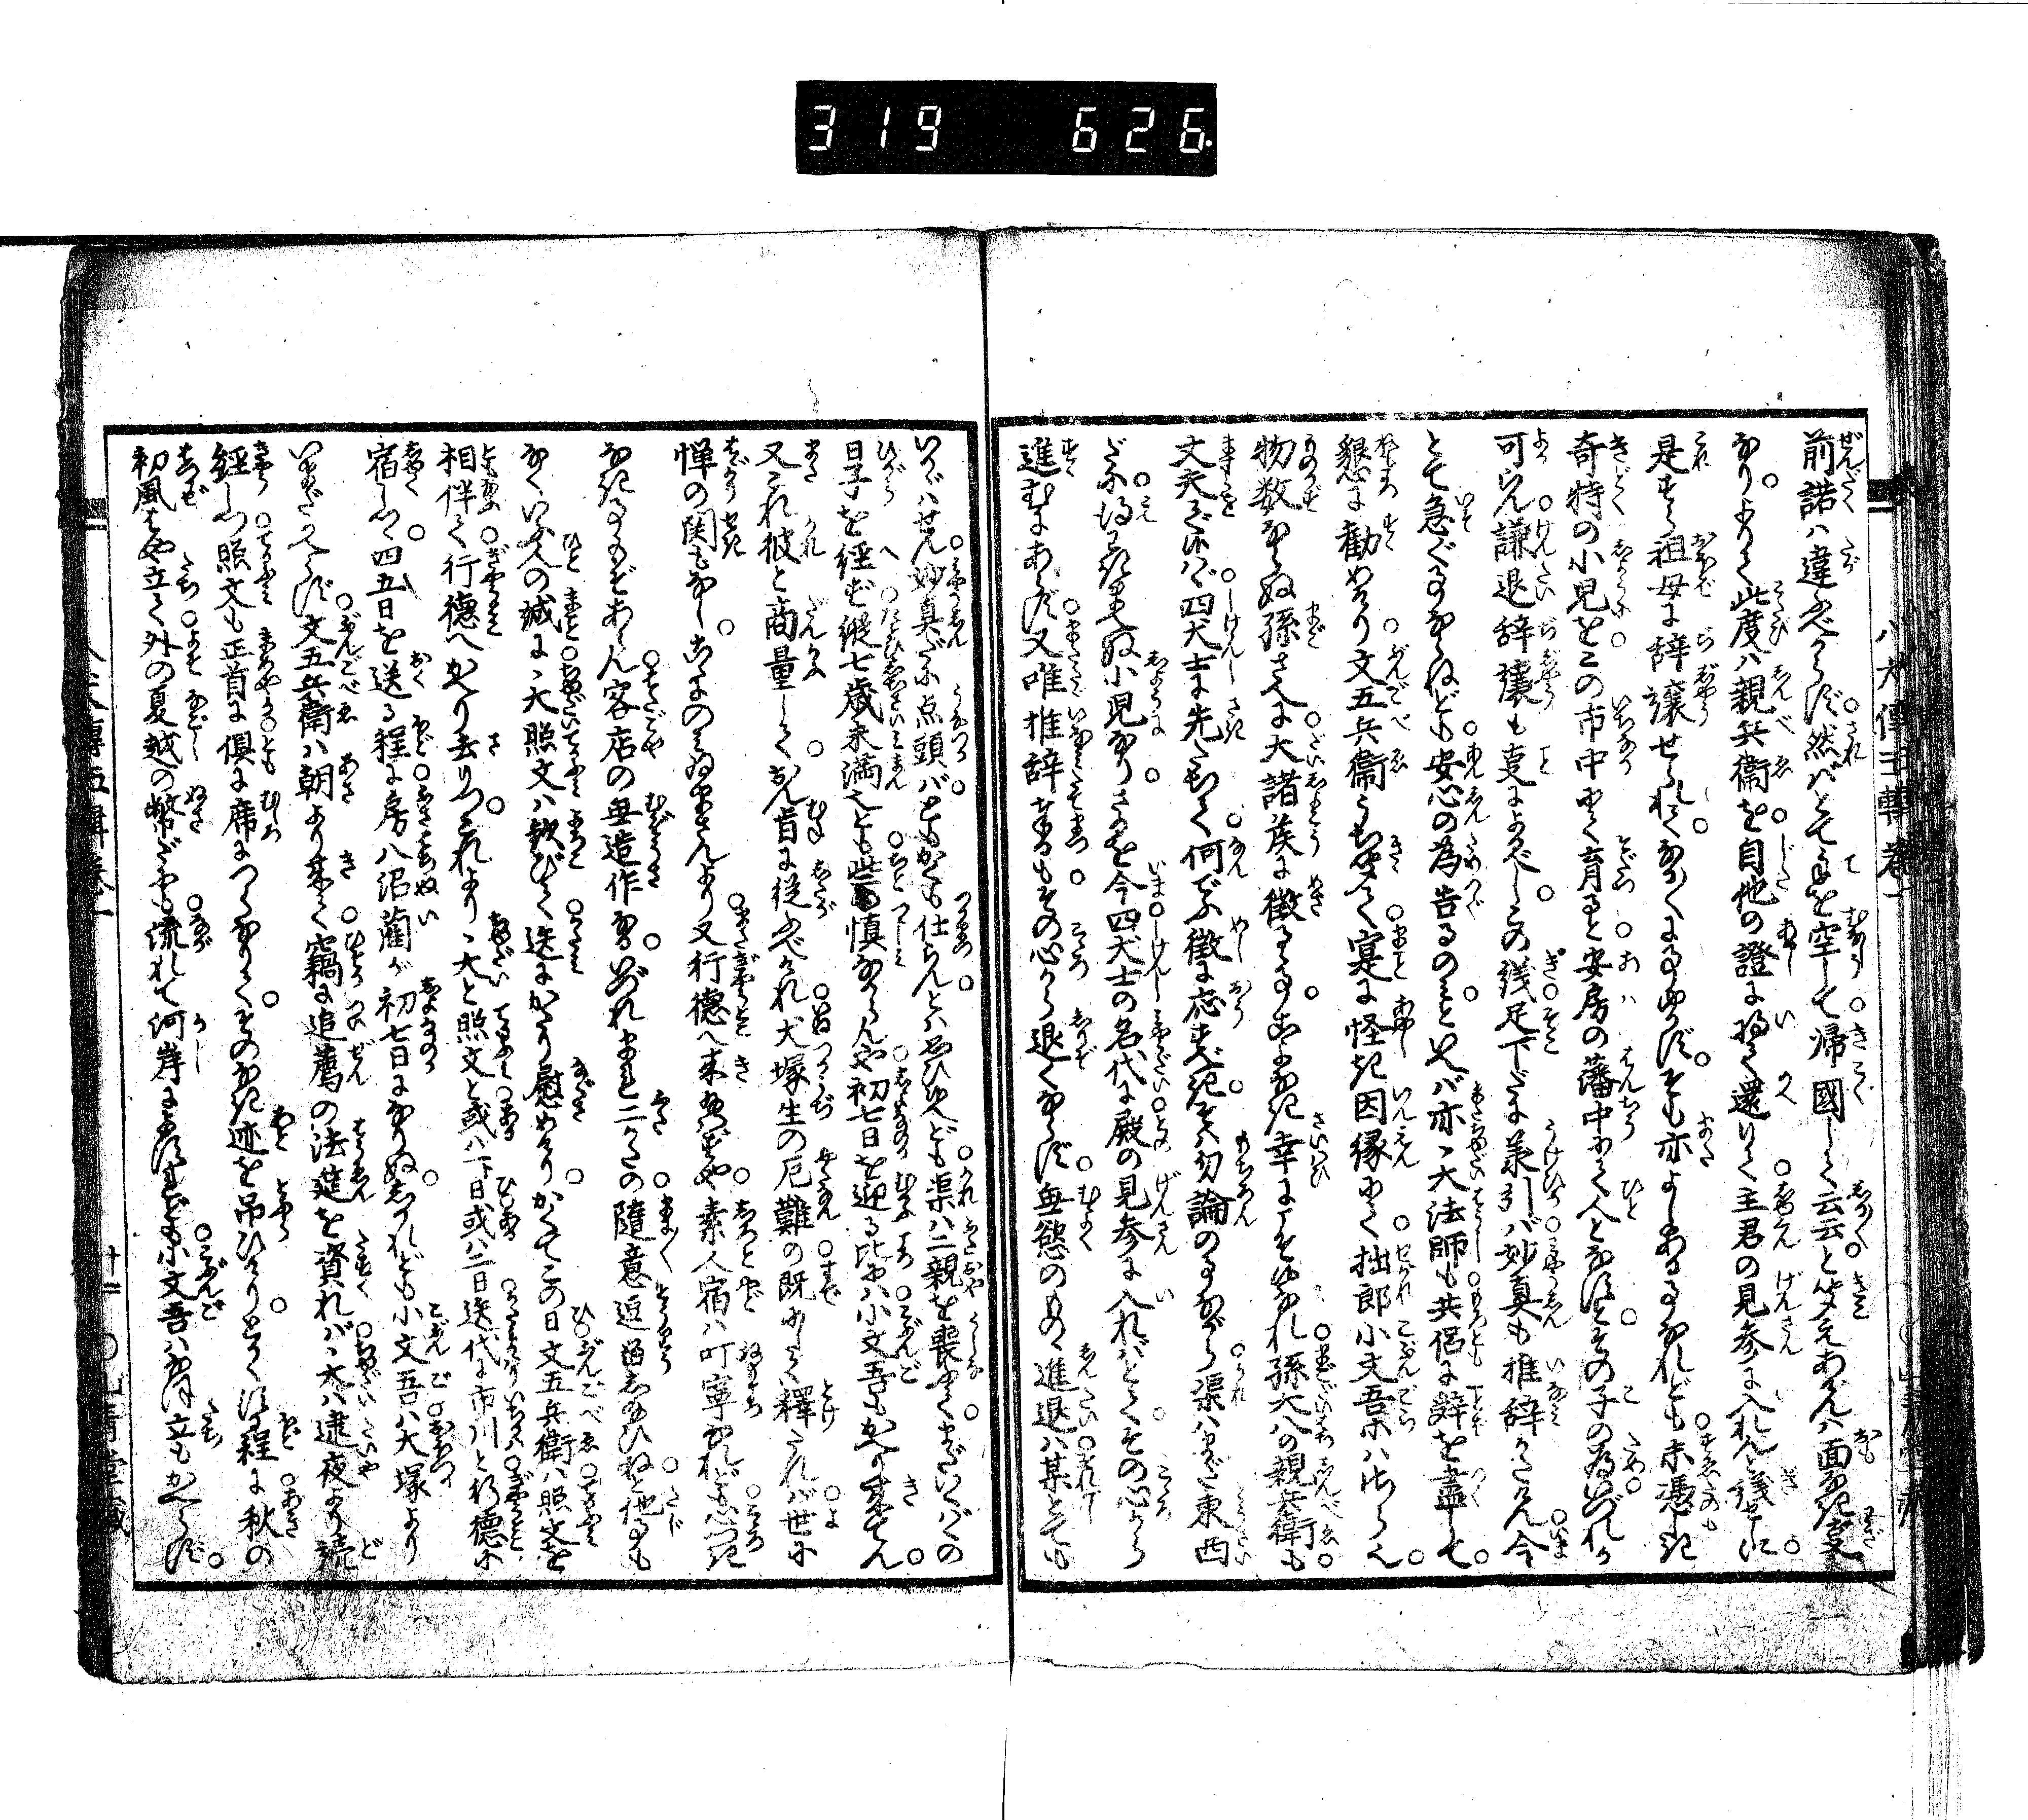 319 626
前諾ハ違ふべからず。然ばとて手を空して帰國して云云と聞えあげんハ面なき事
なり。よりて此度ハ親兵衞を。自他の證に將て還りて。主君の見参に入れん議は。に
是すら祖母に辞譲せられて。
奇特の小児をこの市中にて育ると。安房の藩中にて人となすと。その子の為いづれか
可らん。謙退辞讓も事によるべし。この議足下だに承引バ。妙真も推辞かたけん。今
とて急ぐ事ならねども。安心の為告るのミといへバ。亦丶大法師も共侶に辞を盡して。
懇に勸めけり。文五兵衞うち聞て。寔に怪き因縁にて。拙郎小文吾ホハ
物数ならぬ孫さへに。大諸侯に徴るゝ事。こよなき幸にこそ候なれ。孫大八の親兵衞も。
丈夫に候ハゞ。四犬士に先だちて。何でふ徴に応ずべき。そハ勿論の事ながら。渠ハまだ東西
だに得しらぬ小児なり。さるを今四犬士の名代に。殿の見参に入れバとて。その心から
進むにあらず。又唯推辞まうすも。その心から退くならず。無慾のものゝ進退ハ。某とても
いかゞハせん。妙真だに点頭バ。ともかくも仕らんとハ思ひ候へども。渠ハ二親を喪ふて。まだいくバくの
日子を経ず。縦七歳未満也とも。些の慎なからんや。初七日を迎る比にハ。小文吾もかへり来てん。
又これ彼と商量して。おん旨に従ふべけれ。犬塚生の厄難の。既にして釋たれバ。世に
憚の関もなし。こゝにのみ居まさんより。又行德へ来ませずや。素人宿ハ叮寧なれども。心つき
なき事もぞあらん。客店の無造作なる。いづれまれ二かたの。随意逗留し給ひねと。他事も
なくいふ人の誠に。丶大照文ハ歓びて。迭にかたり慰めけり。かくてこの日文五兵衞ハ。照文を
相伴て。行德へかへり去りつ。これより丶大と照文と。或ハ一日或ハ二日。迭代に市川と。行德に
宿しつゝ。四五日を送る程に。房八沼藺が初七日になりぬ。しかれども小文吾ハ。大塚より
いまだかへらず。文五兵衞ハ朝より来て。竊に追薦の法莚を資れバ。丶大ハ逮夜より読
經しつ。照文も正首に。倶に席につらなりて。そのなき迹を吊ひけり。とかくする程に。秋の
初風はや立て。外の夏越の幣だにも。流れて河岸にあらずなれども。小文吾ハなほ立もかへらず。
八犬傳五輯卷一
八犬傳五輯卷一
十一